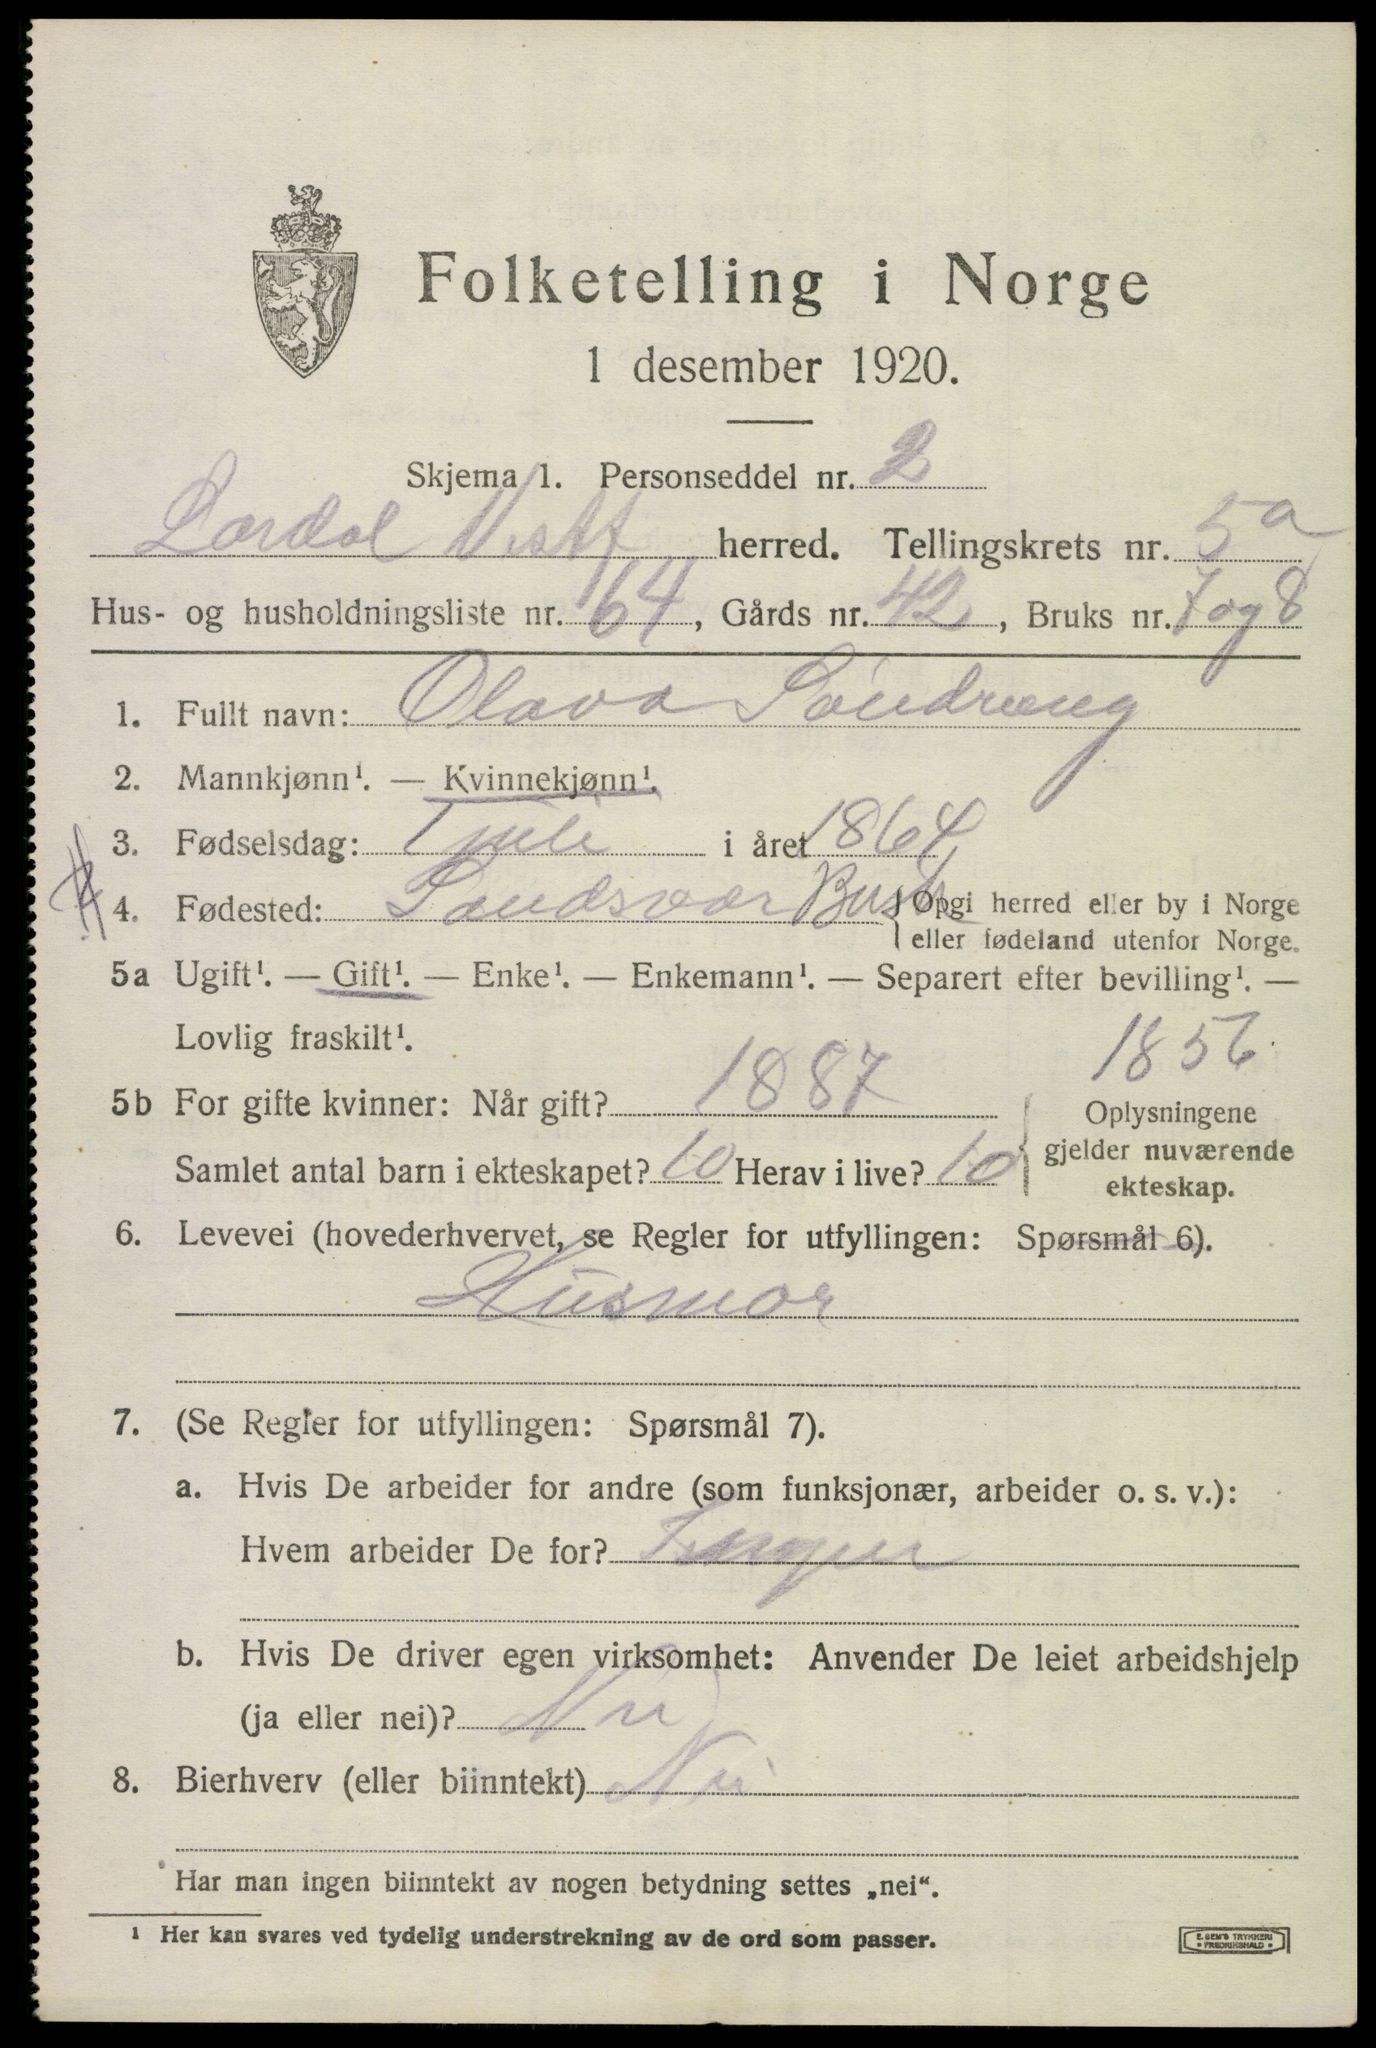 Folketelling i Norge
1 desember 1920.
Skjema 1. Personseddel nr. 2
Lardal Vestf herred. Tellingskrets nr. 5a
Hus- og husholdningsliste nr. 64, Gårds nr. 42, Bruks nr. 7 og 8
1. Fullt navn: Olava
2. Mannkjønn¹. — Kvinnekjønn¹.
3. Fødselsdag: 1 juli i året 1864
4. Fødested: Sandsvær Busk {Opgi herred eller by i Norge
eller fødeland utenfor Norge.
5a Ugift¹. — Gift¹. — Enke¹. — Enkemann¹. — Separert efter bevilling¹. —
Lovlig fraskilt¹.
1856
5b For gifte kvinner: Når gift? 1887
Samlet antal barn i ekteskapet? 10 Herav i live? 10
Oplysningene
gjelder nuværende
ekteskap.
6. Levevei (hovederhvervet, se Regler for utfyllingen: Spørsmål 6).
Husmor
7. (Se Regler for utfyllingen: Spørsmål 7).
a. Hvis De arbeider for andre (som funksjonær, arbeider o. s. v.):
Hvem arbeider De for? Ingen
b. Hvis De driver egen virksomhet: Anvender De leiet arbeidshjelp
(ja eller nei)? Nei
8. Bierhverv (eller biinntekt) Nei
Har man ingen biinntekt av nogen betydning settes „nei“.
¹ Her kan svares ved tydelig understrekning av de ord som passer.
E. SEM'S TRYKKERI
• FREDRIKSHALD •